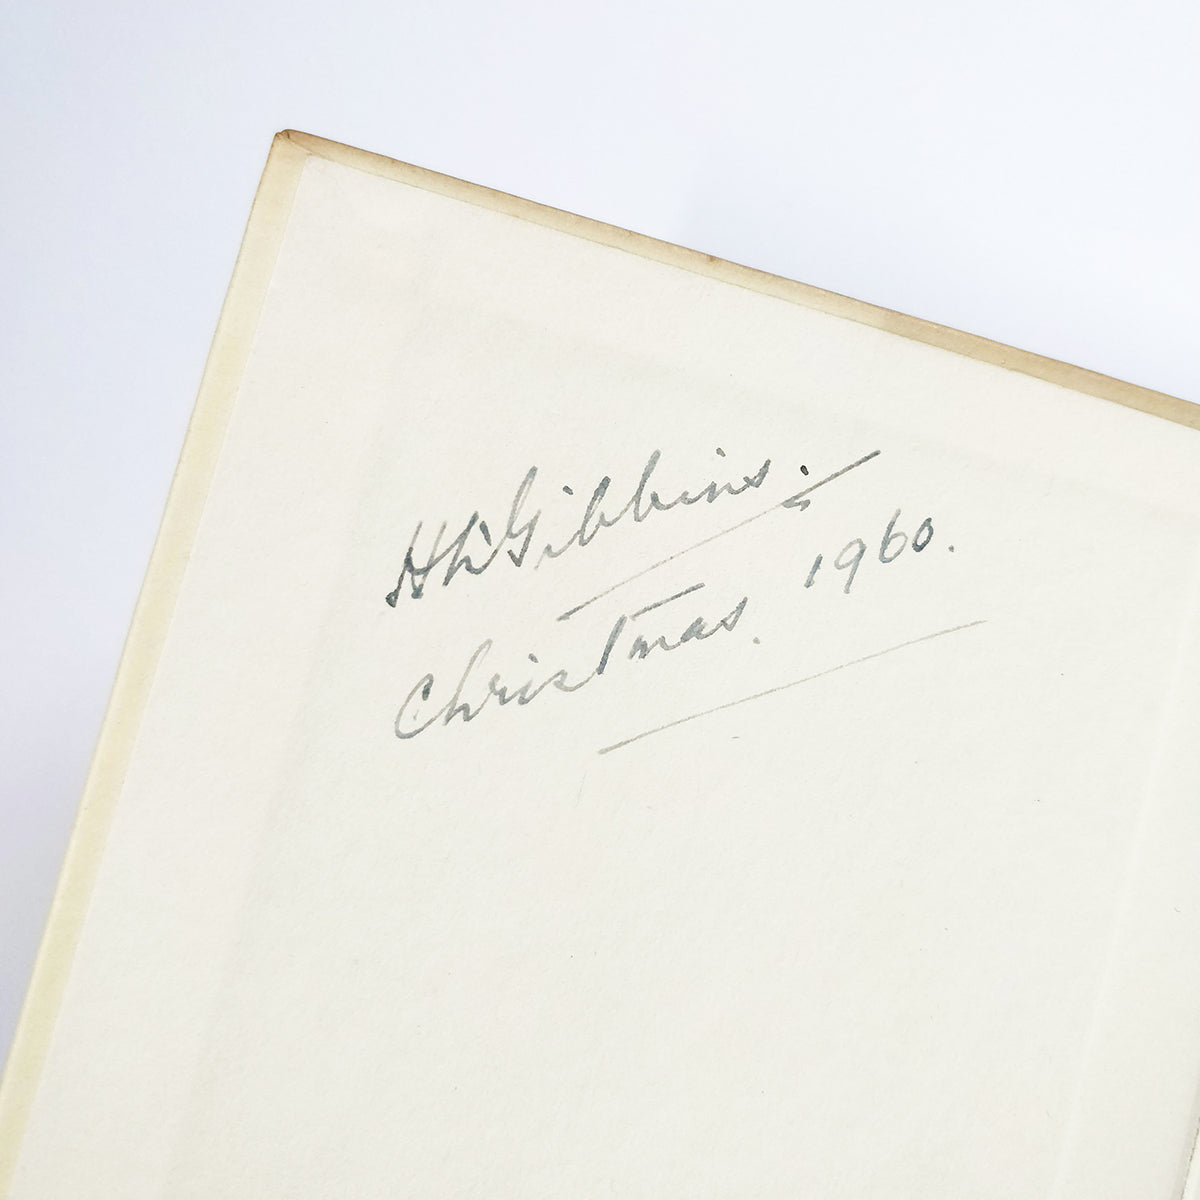 Gibbins.
Christmas. 1960.